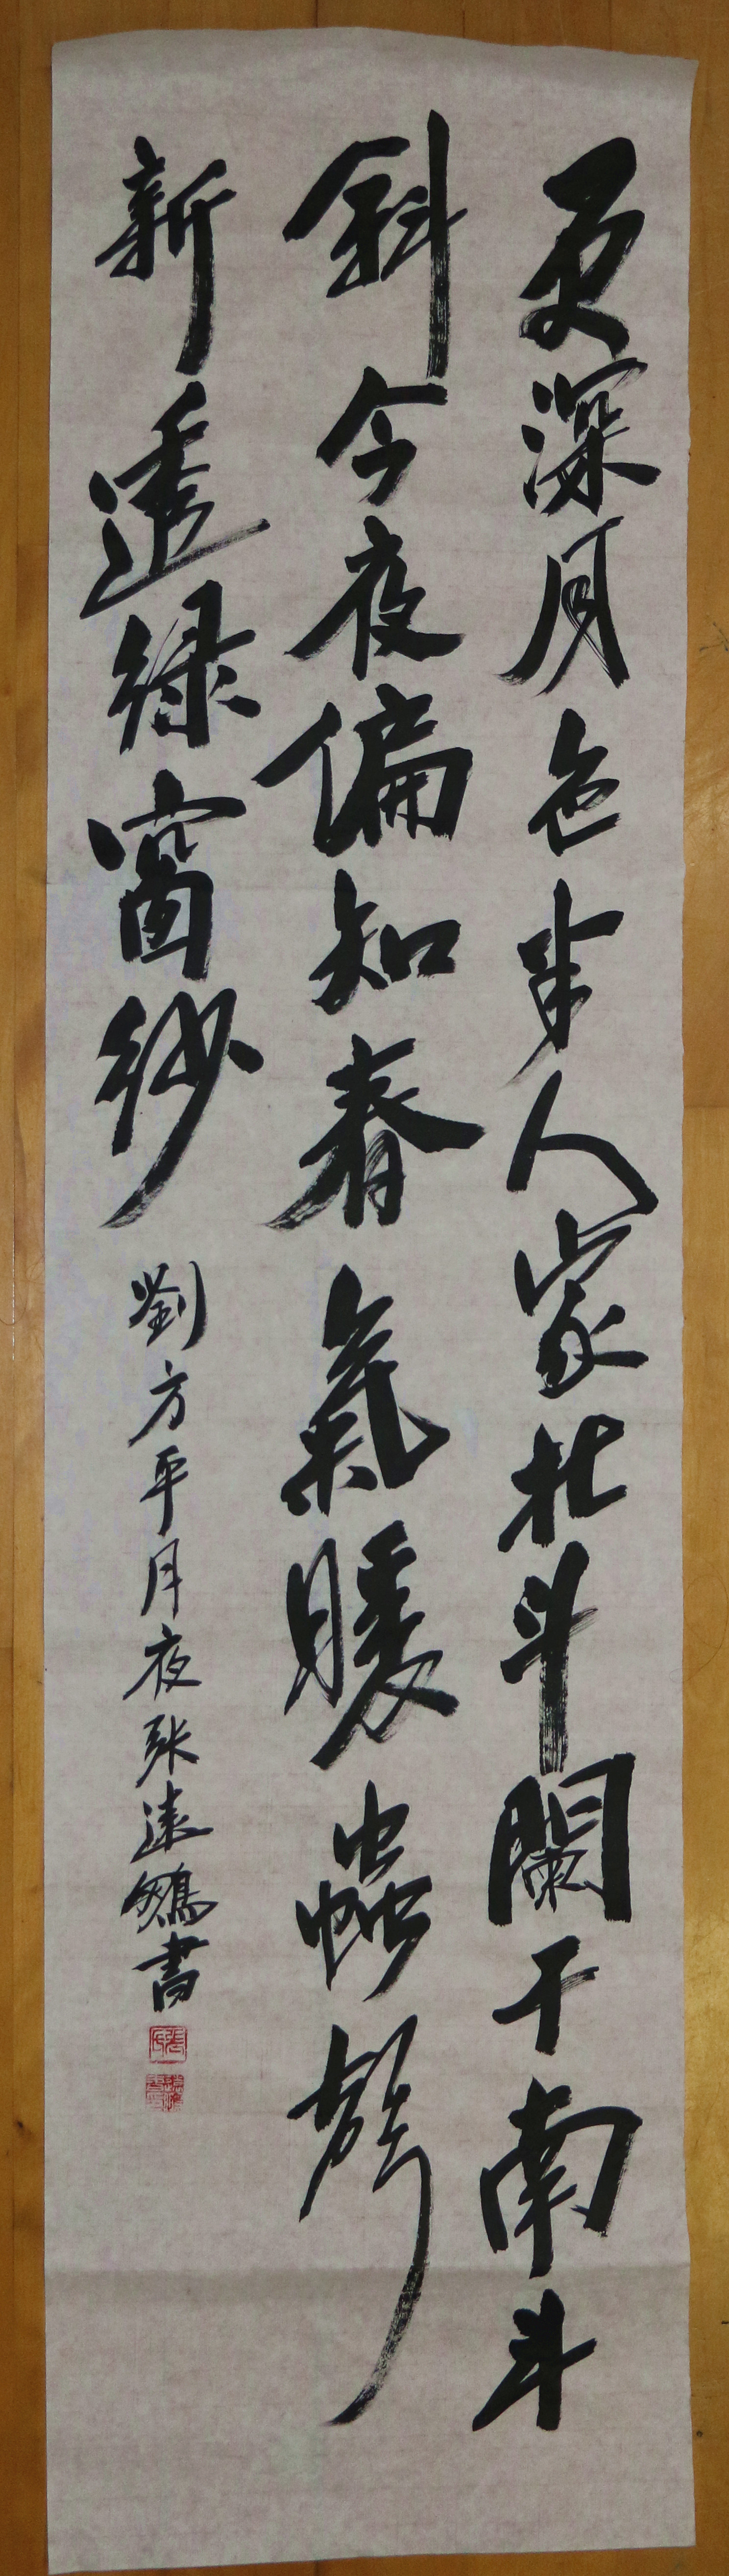 更深月色半人家北斗闌干南斗
斜今夜偏知春氣暖蟲聲
新透綠窗紗
劉方平月夜張遠鵝書